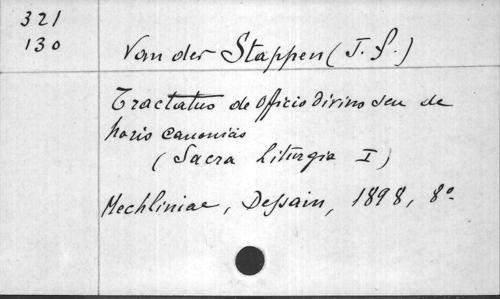 321
130
Van der Stappen (J. F.)
Tractatus de officio divino seu de
horis canonicis
(Sacra Liturgia I)
Mechliniae, Dessain, 1898, 8º.